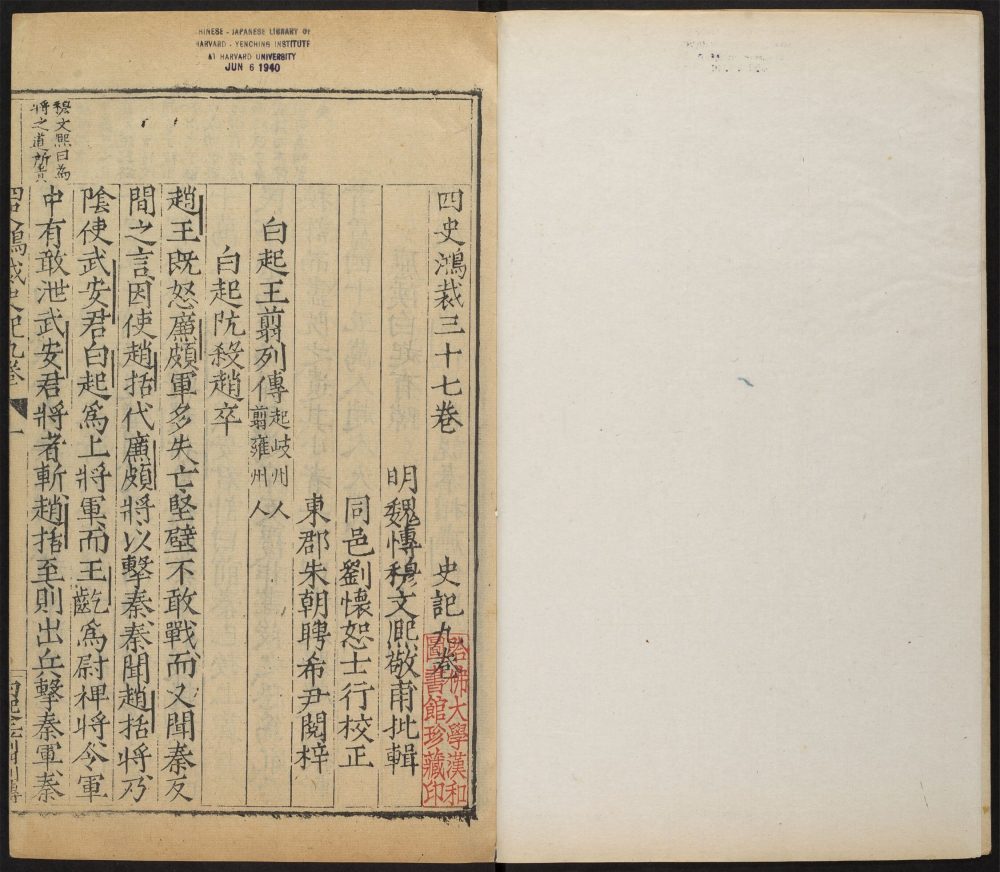 CHINESE - JAPANESE LIBRARY OF
HARVARD - YENCHING INSTITUTE
AT HARVARD UNIVERSITY
JUN 6 1940
四史鴻裁三十七卷 史記九卷
明魏博穆文熙敬甫批輯
同邑劉懷恕士行校正
東郡朱朝聘希尹閱梓
白起王翦列傳 起岐州人
翦雍州人
白起阬殺趙卒
趙王既怒廉頗軍多失亡堅壁不敢戰而又聞秦反
間之言因使趙括代廉頗將以擊秦秦聞趙括將乃
陰使武安君白起爲上將軍而王齕爲尉裨將令軍
中有敢泄武安君將者斬趙括至則出兵擊秦軍秦
穆文熙曰爲
將之道所貴
四史鴻裁史記九卷 一
哈佛大學漢和
圖書館珍藏印